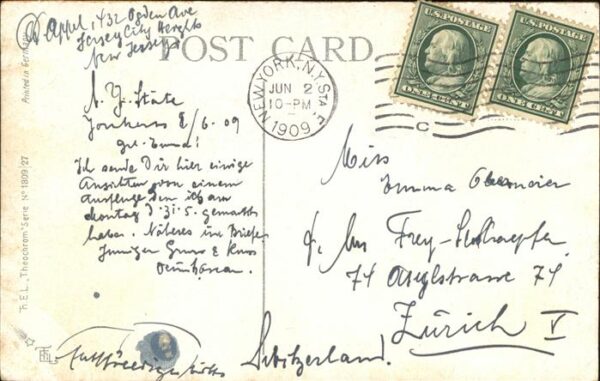 Appel, 432 Ogden Ave
Jersey City Heights
New Jersey
POST CARD
Printed in Germany
N.Y. State
Yonkers 2/6.09
Ich sende Dir hier einige
Ansichten von einem
Ausfluge den ich am
Montag d. 31.5. gemacht
habe. Näheres im Brief.
Inniger Gruss & Kuss
NEW YORK, N.Y. STA
JUN 2
10-PM
1909
C
U.S. POSTAGE
ONE CENT
U.S. POSTAGE
ONE CENT
Miss
Emma Obermeier
Frey-
74 Asylstrasse 74
Zürich V
Switzerland.
"Theochrom" Serie No 1809/27